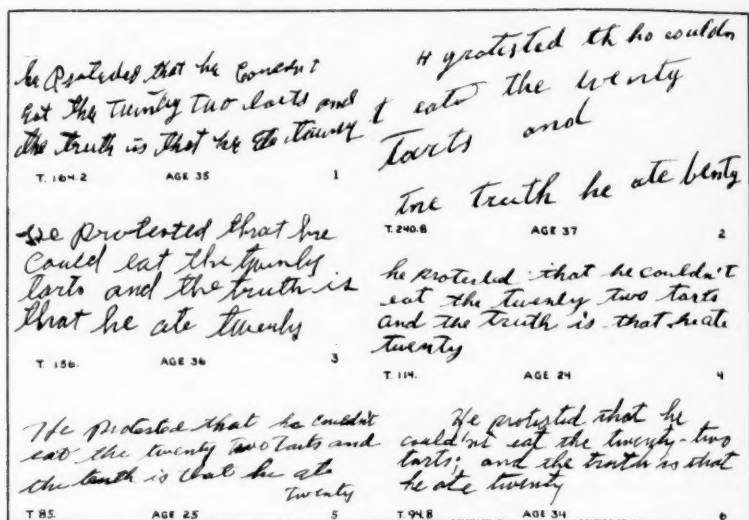 he Protected that he Couldn't
Eat The Twinty Two tarts and
the truth is that he ate twenty
T. 164.2 AGE 35 1
H gratested th ho wouldn
t eate the wenty
Tarts and
The truth he ate benty
T. 240.8 AGE 37 2
He protested that he
Could eat the twinty
tarts and the truth is
that he ate twenty
T. 156. AGE 36 3
he protested that he couldn't
eat the twenty two tarts
and the truth is that he ate
twenty
T. 114. AGE 24 4
He protested that he couldn't
eat the twenty two tarts and
the truth is that he ate
twenty
T 85. AGE 25 5
He protested that he
could'nt eat the twenty-two
tarts; and the truth is that
he ate twenty
T. 94.8 AGE 34 6